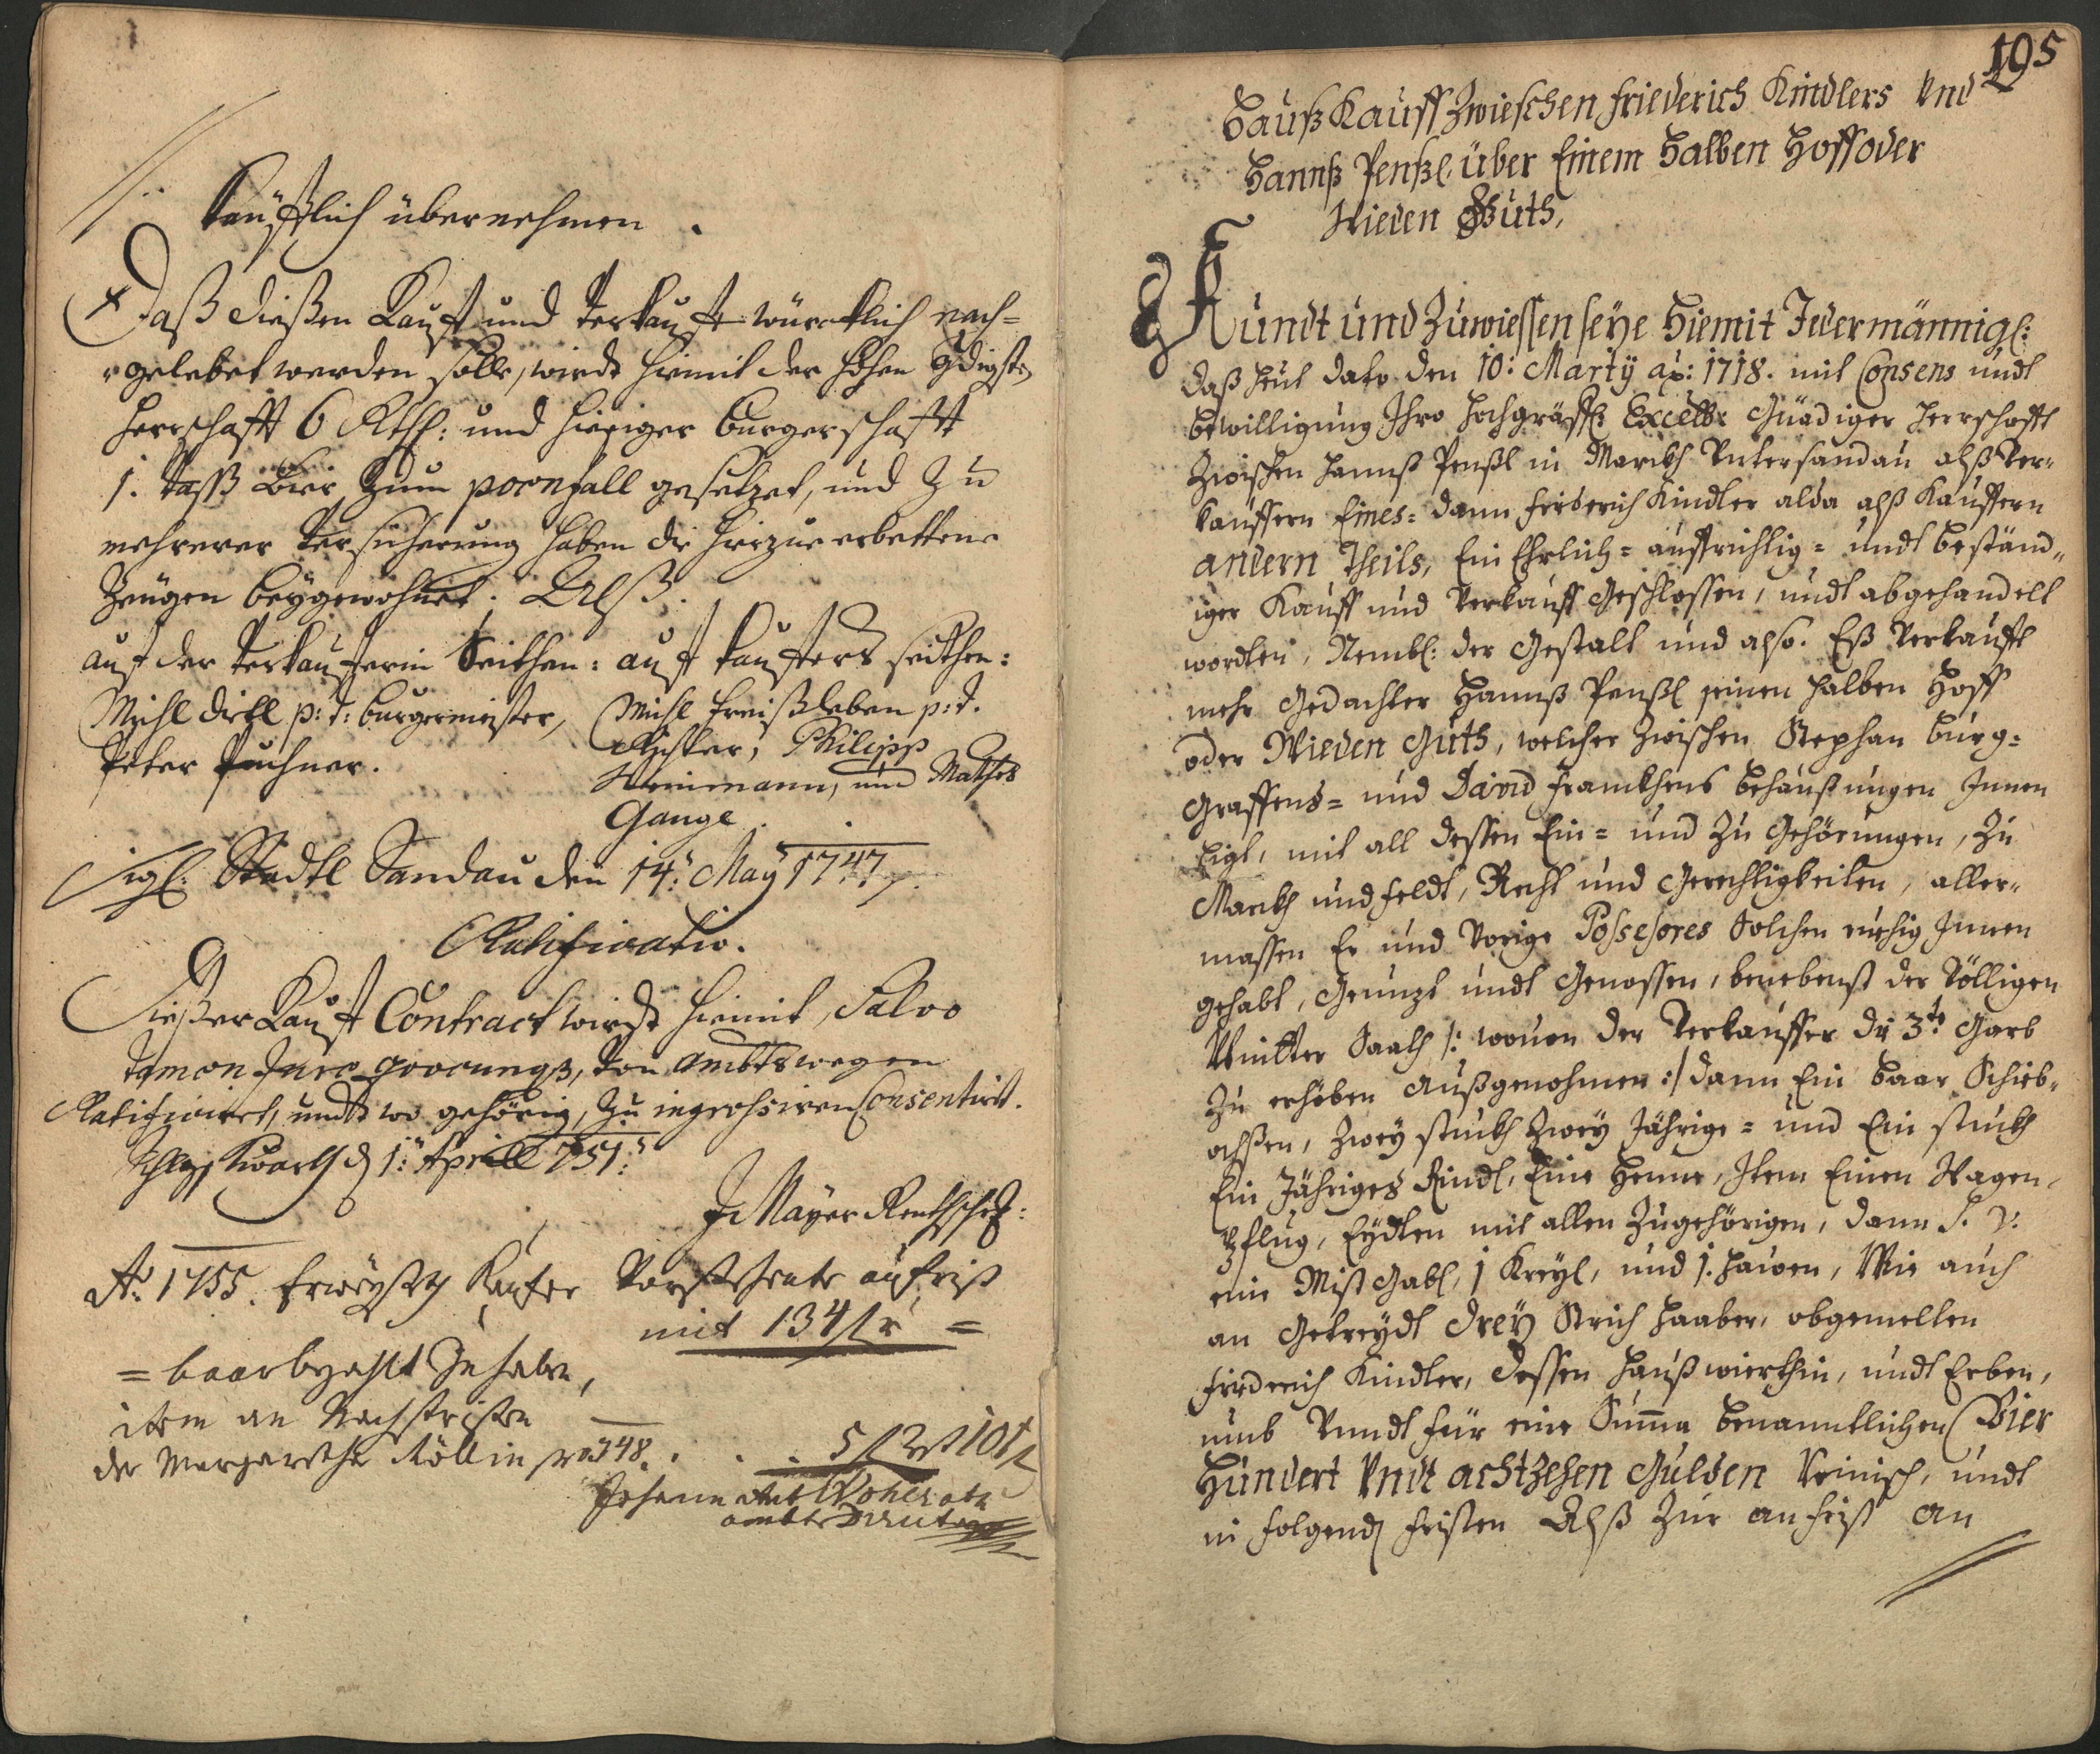 käufflich übernehmen.
Daß dießen Kauf und Verkauf würcklich nach=
gelebet werden solle, wirdt hiemit der hohen Gdigsten
Herrschafft 6 Rthl: und hießiger Burgerschafft
1. Vaß Bier zum poenfall gesetzet, und zu
mehrerer Versicherung haben die hierzue erbettene
Zeügen beygewohnet. Alß.
auf der Verkauferin Seithen: auf Kaufers seithen:
Michl Dietl p:t: burgermeister,
Peter Puchner.
Michl Freißleben p:t.
Richter, Philipp
und Mathes
Gange
Sigl: Stadtl Sandau den 14. May 1747.
Ratificatio.
Dießer Kauf Contract wirdt hiemit, Salvo
tamen Jure, von ambtswegen
Ratificiret, undt wo gehörig, zu ingrossiren Consentirt.
1: Aprill 751:
J Mayer
Ao. 1755. Kaufer
mit 134 f x =
= baar bezahlt
item an Nachfristen
der Margaretha Röllin pro 748. . . .
Johann
ambts
195
Hauß Kauff Zwieschen Friederich Kindlers Und
Hannß Penßl, über Einem Halben Hoff oder
Wieden Guth,
Kundt und Zuwiessen seye Hiemit Jedermännigl:
daß heut dato den 10: Marty ao: 1718. mit Consens undt
bewilligung Ihro Hochgräffl: Excell: Gnädiger Herrschafft
Zwischen Hannß Penßl in Marckh Untersandau alß Ver=
käuffern Eines= dann Friderich Kindler alda alß Kauffern
andern Theils, Ein Ehrlich= auffrichtig= undt beständ=
iger Kauff und Verkauff Geschlossen, undt abgehandelt
worden, Nembl: der Gestalt und also. Eß Verkaufft
mehr Gedachter Hannß Penßl seinen halben Hoff
oder Wieden Guth, welcher Zwischen Stephan Burg=
Graffens= und David Franckhens behaußungen Innen
Ligt, mit all dessen Ein= und Zu Gehörungen, Zu
Marckh und Feldt, Recht und Gerechtigkeiten, aller=
massen Er und Vorige Possessores Solchen ruehig Innen
gehabt, Genutzt undt Genossen, benebenst der Völligen
Winter Saath /: wovon der Verkauffer die 3te Garb
Zu erheben Außgenohmen :/ dann Ein Paar Schieb=
ochsen, Zwey stückh Zwey Jährige= und Ein stuckh
Ein Jähriges Rindl, Eine Henne, Item Einen Wagen,
Pflug, Eydten mit allen Zugehörigen, dann S. V:
eine Mist Gabl, 1 Kreyl, und 1. Hauen, Wie auch
an Getreydt drey Strich Haaber, obgemelten
Friderich Kindler, dessen Haußwierthin, undt Erben,
umb Unndt für eine Suma benanntlichen Vier
Hundert Undt achtzehen Gulden Reinisch, undt
in folgend Fristen Alß Zur anfrist an